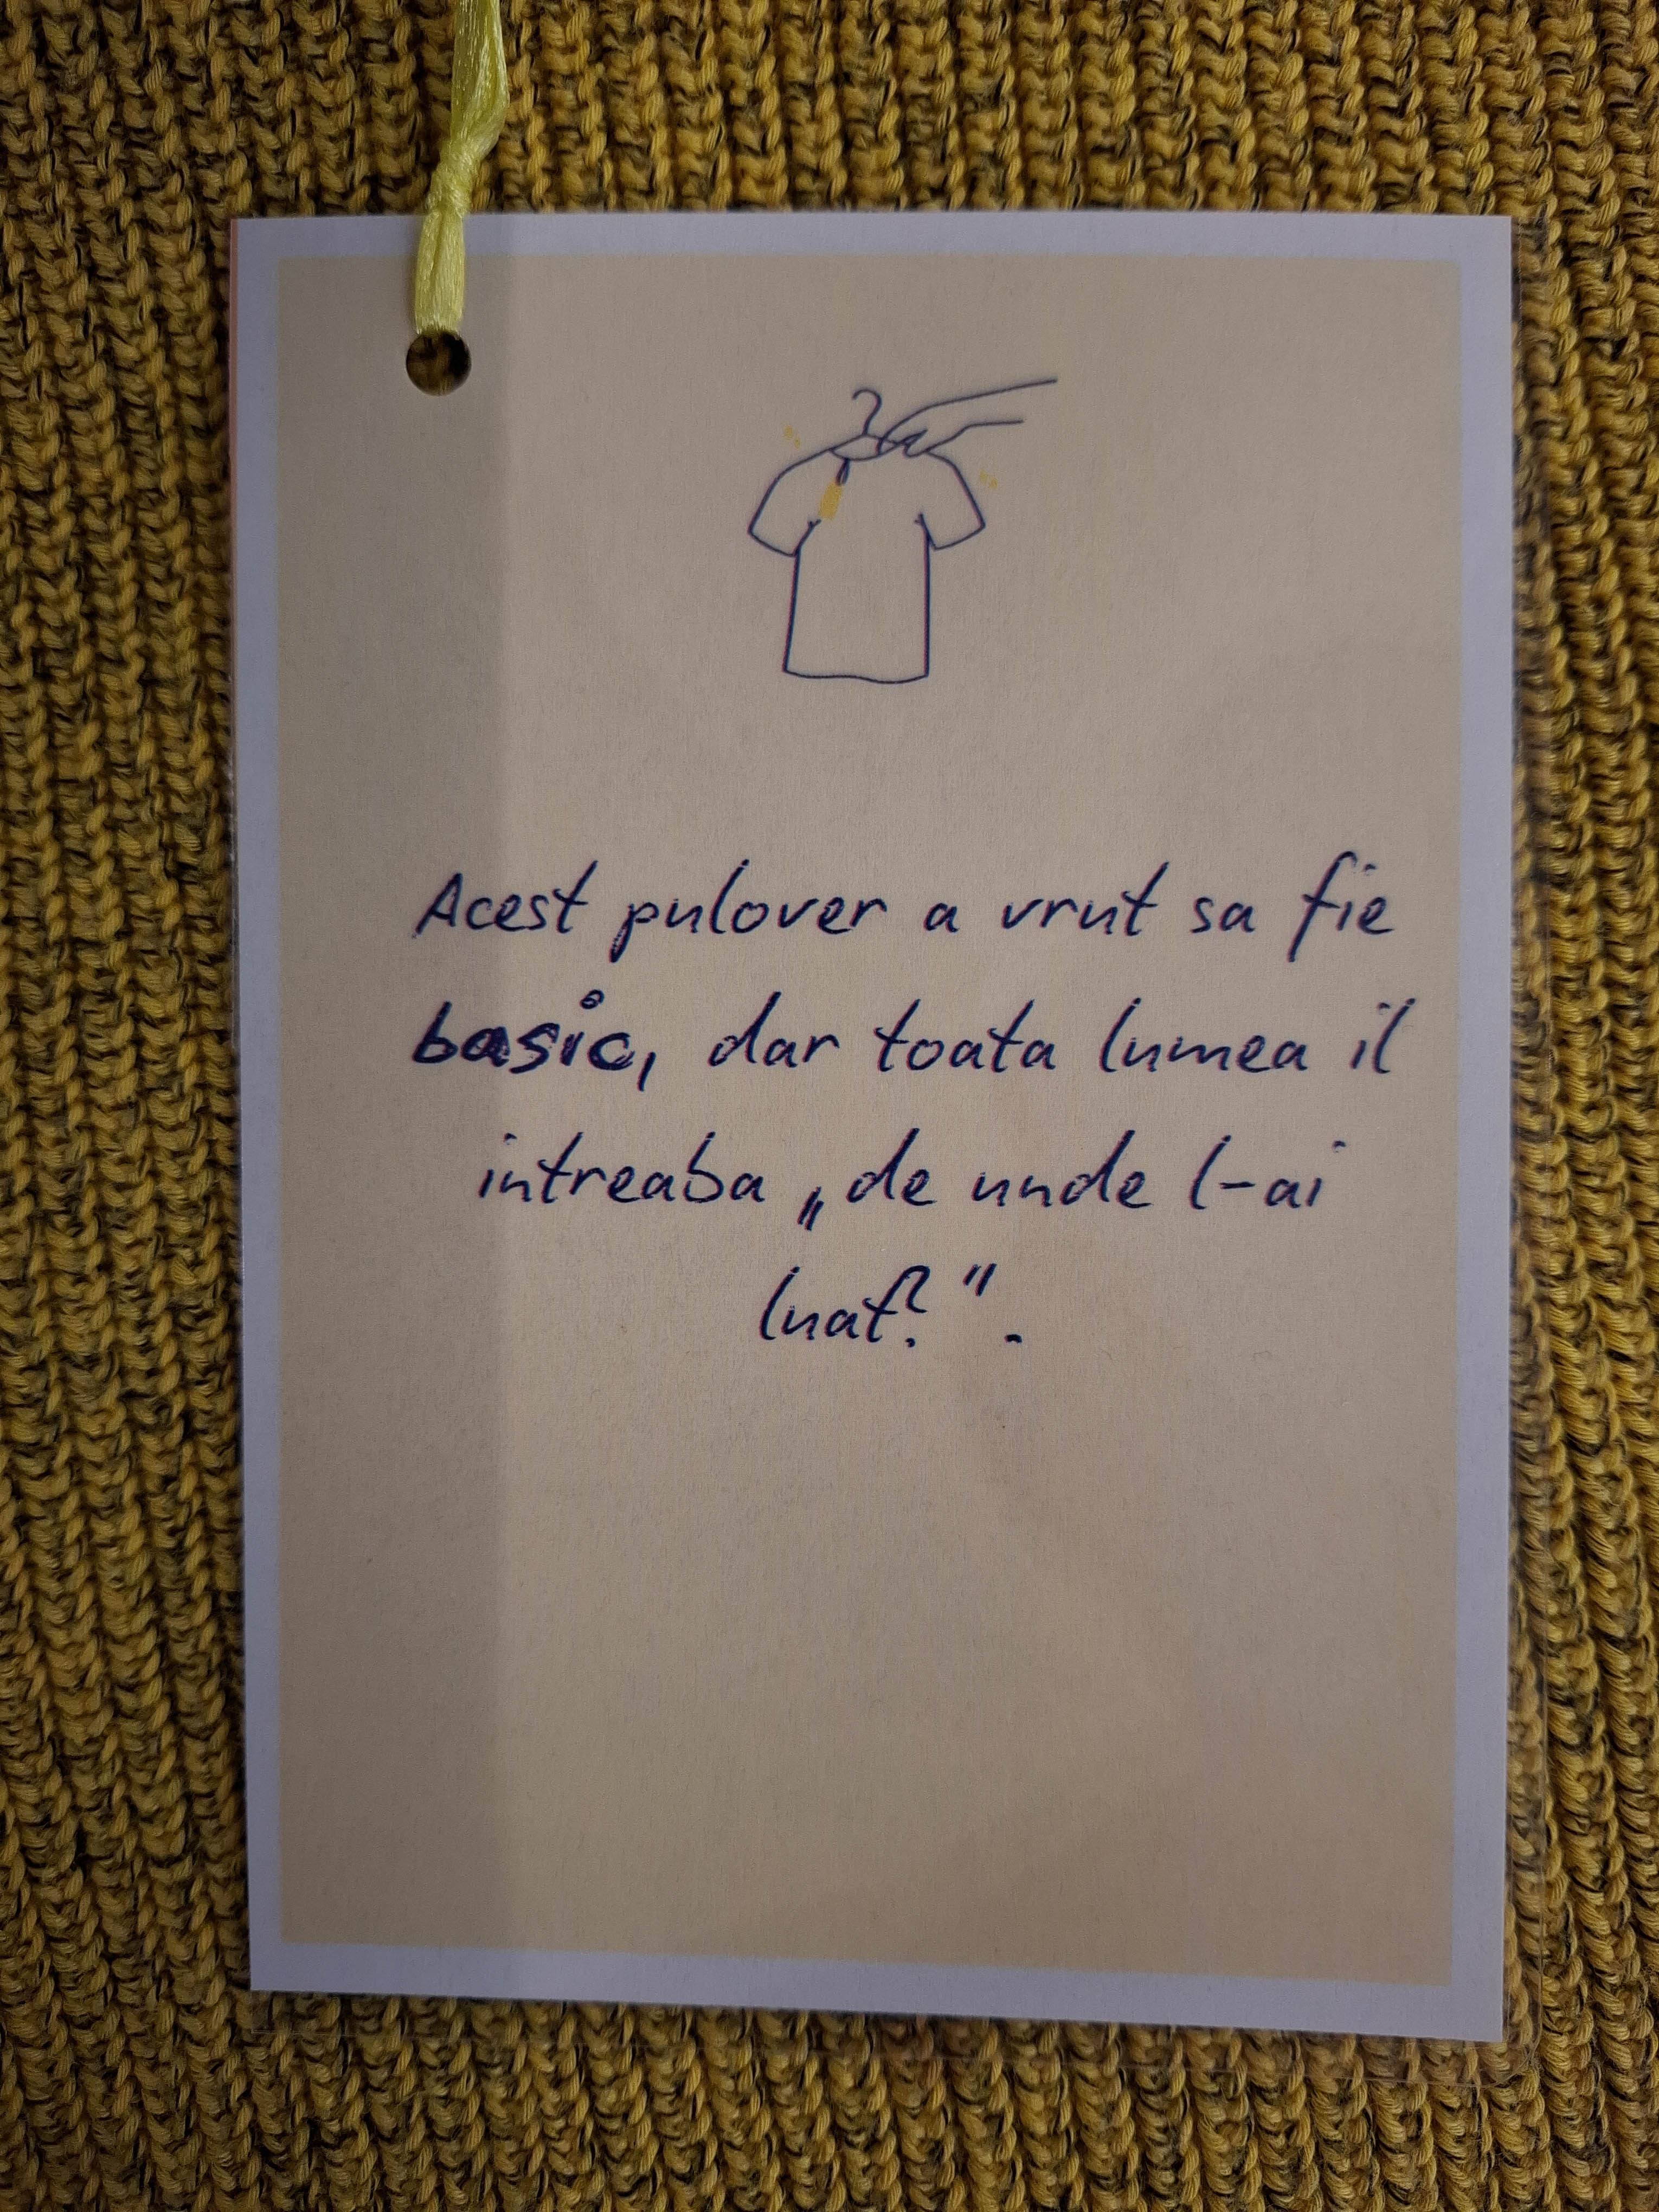 Acest pulover a vrut sa fie
basic, dar toata lumea il
intreaba „de unde l-ai
luat?".